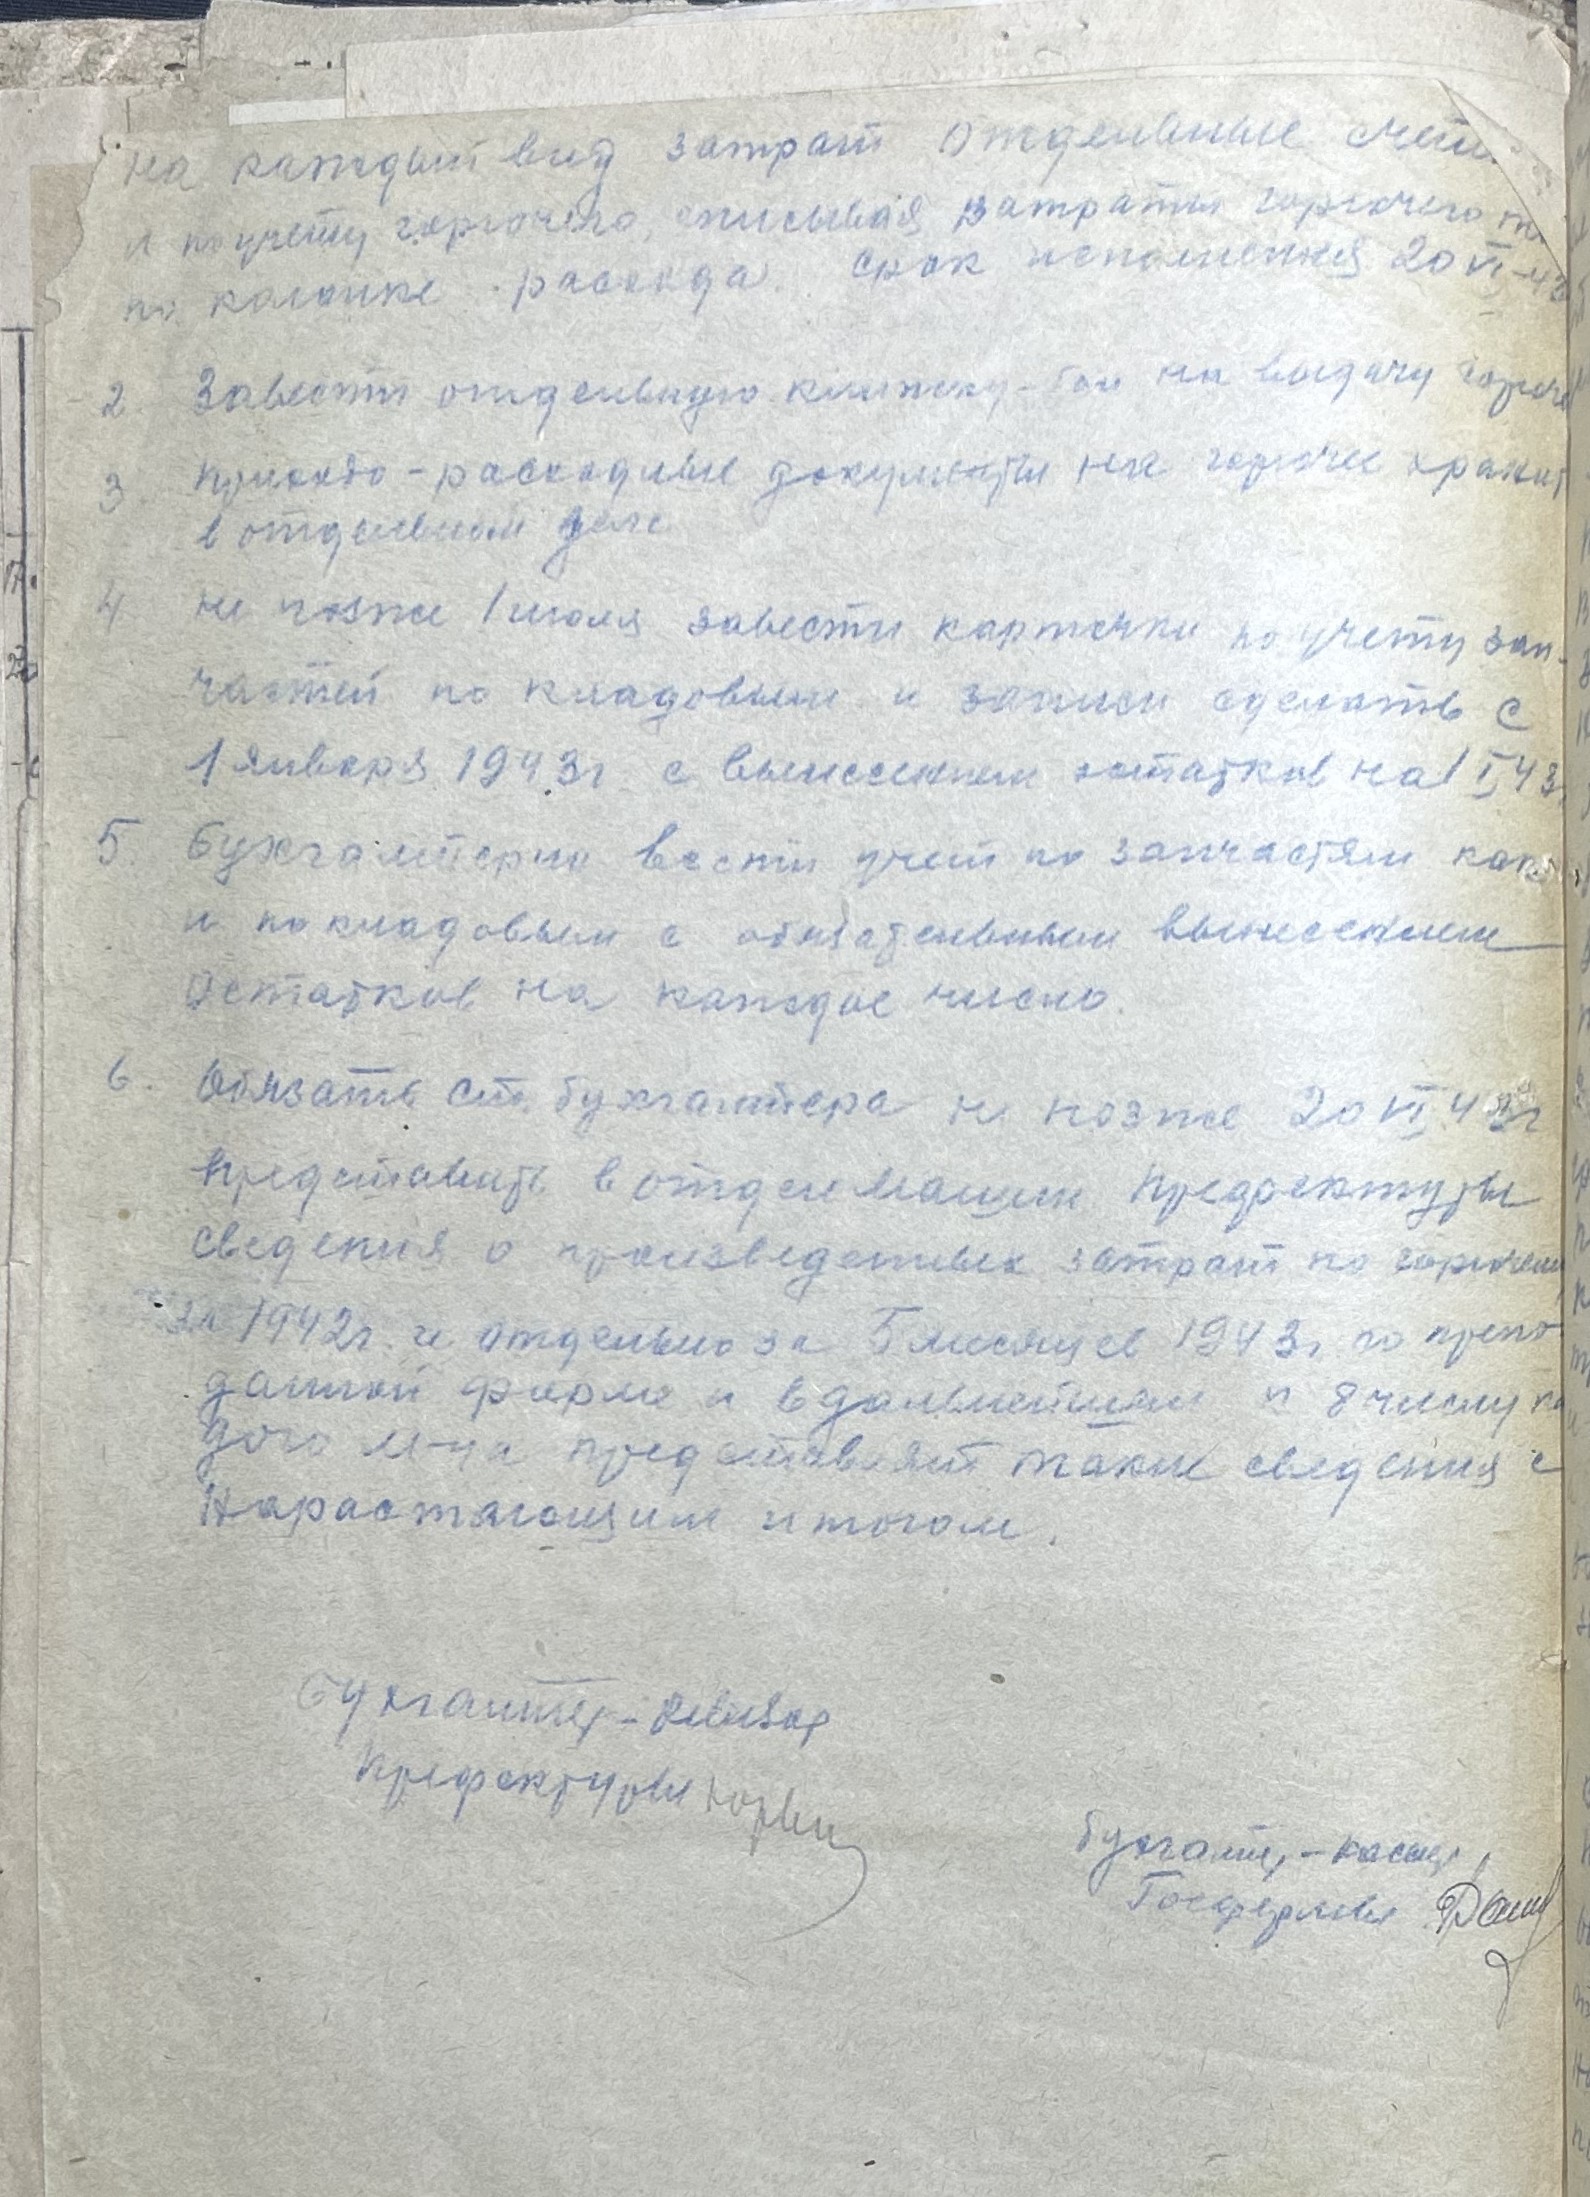 на каждый вид затрат отдельные счета
и по учету горючего, списывая затраты горючего
по колонке расхода. Срок исполнения 20 VI-43
2. Завести отдельную книжку на выдачу горюч
3. Приходо-расходные документы на горючее хранит
в отдельном деле
4. Не позже 1 июля завести карточки по учету зап-
частей по кладовым и записи сделать с
1 января 1943 г. с вынесением остатков на 1 I 43.
5. Бухгалтерии вести учет по запчастям как
и по кладовым с обязательным вынесением
остатков на каждое число.
6. Обязать ст. бухгалтера не позже 20 VI 43 г
представить в отдел машин Префектуры
сведения о произведенных затрат по горючему
за 1942 г. и отдельно за 5 месяцев 1943 г. по препо
данной форме и в дальнейшем к 8 числу ка
дого м-ца представлят такие сведения с
нарастающим итогом.
Бухгалтер-Ревизор
Префектуры
Бухгалтер-кассир
Госфермы